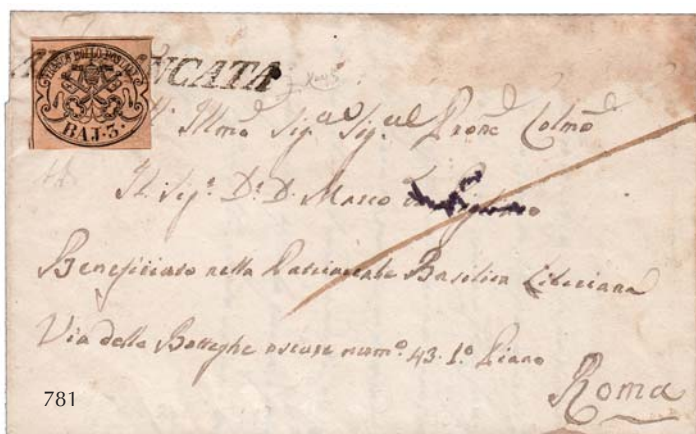 FRANCO BOLLO POSTALE
BAJ. 3.
NCATA
Illmo Sigre Sigre Prone Colmo
Il Sigr. D. D. Marco
Beneficiato nella Patriarcale Basilica Liberiana
Via delle Botteghe oscure numo. 43. 1o. Piano
Roma
781